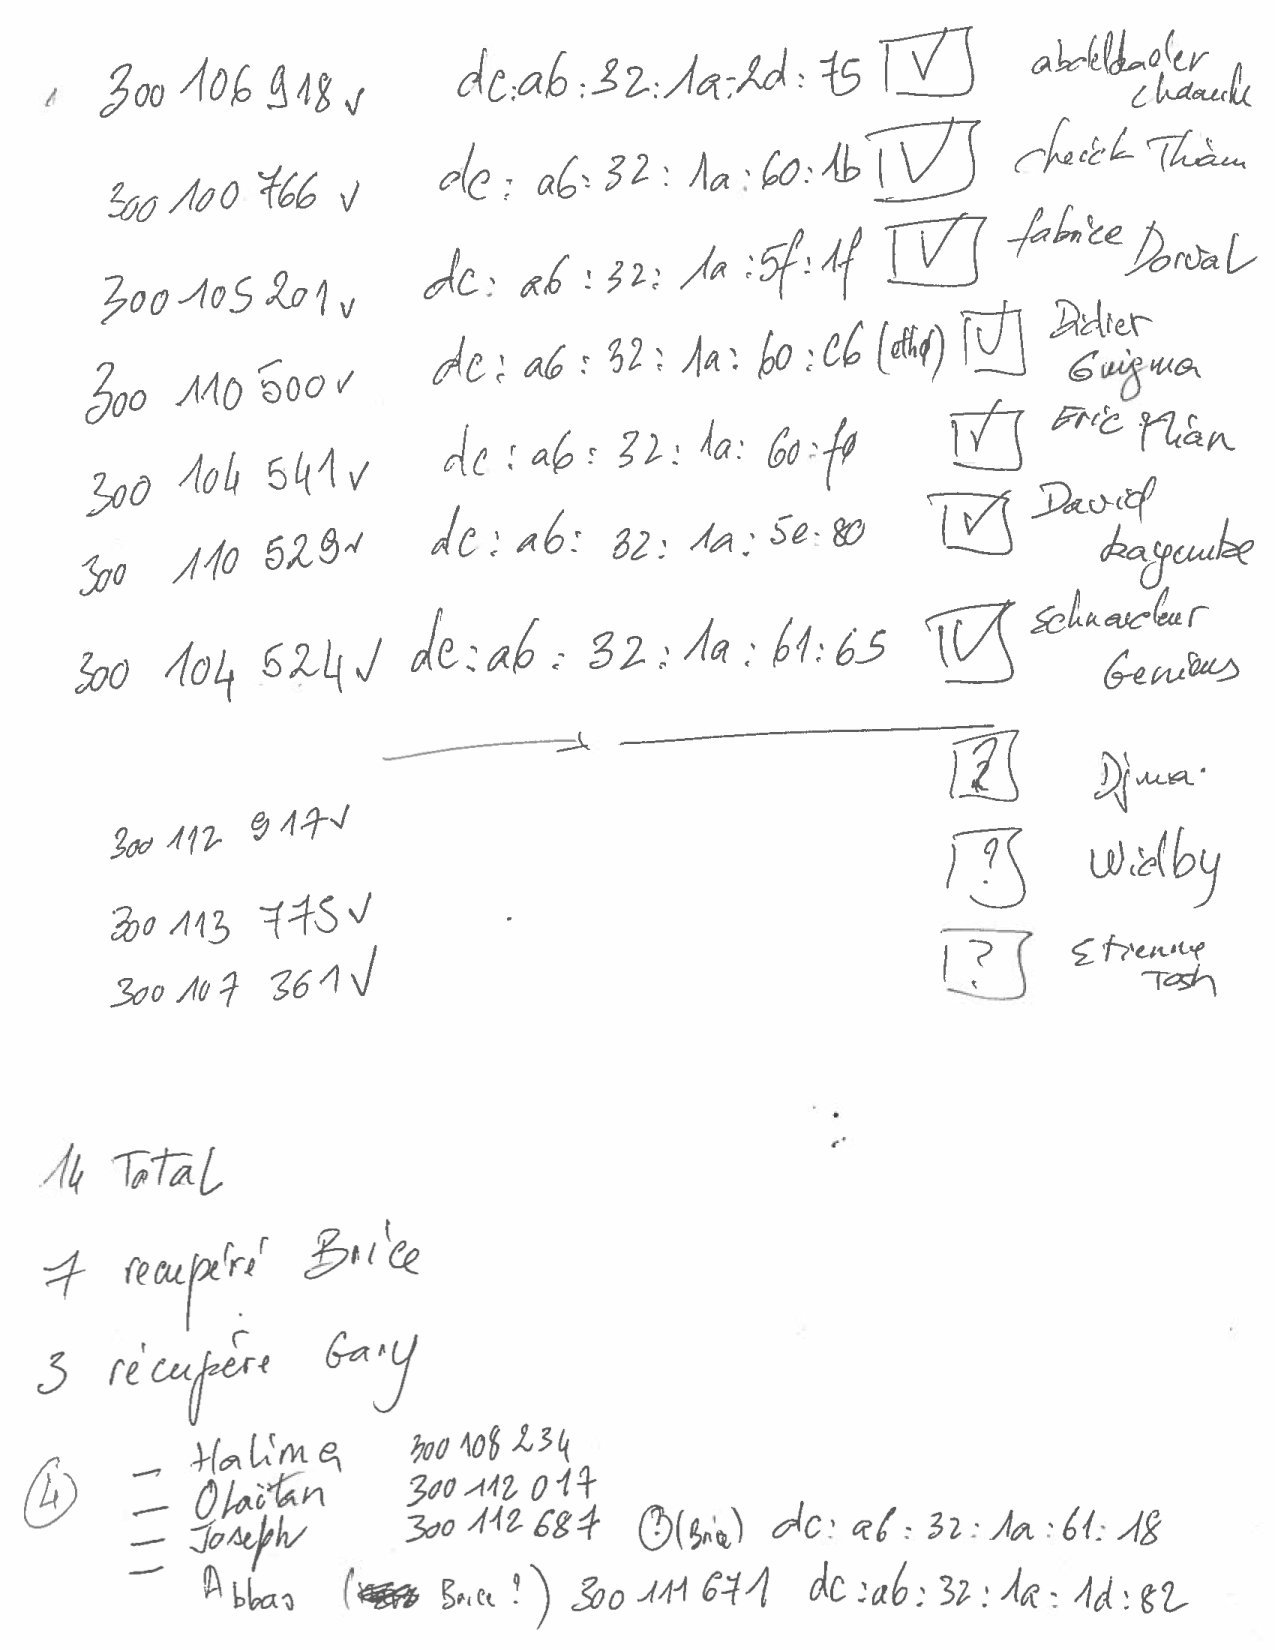 300 106 918 ✓ dc:a6:32:1a:2d:75 ✓ abdelkader
300 100 766 ✓ dc:a6:32:1a:60:1b ✓ cheick Thiam
300 105 201 ✓ dc:a6:32:1a:5f:1f ✓ fabrice Dorval
300 110 500 ✓ dc:a6:32:1a:60:C6 (eth0) ✓ Didier
Guigma
300 104 541 ✓ dc:a6:32:1a:60:f0 ✓ Eric
300 110 529 ✓ dc:a6:32:1a:5e:80 ✓ David
kayembe
300 104 524 ✓ dc:a6:32:1a:61:65 ✓
? Djuma
300 112 917 ✓
? Wielby
300 113 775 ✓
? Etienne
Tosh
300 107 361 ✓
14 Total
7 recupéré Brice
3 récupère Gary
4
— Halima 300 108 234
— Olaitan 300 112 017
— Joseph 300 112 687 ? (Brice) dc:a6:32:1a:61:18
— Abbas ( Brice ?) 300 111 671 dc:a6:32:1a:1d:82